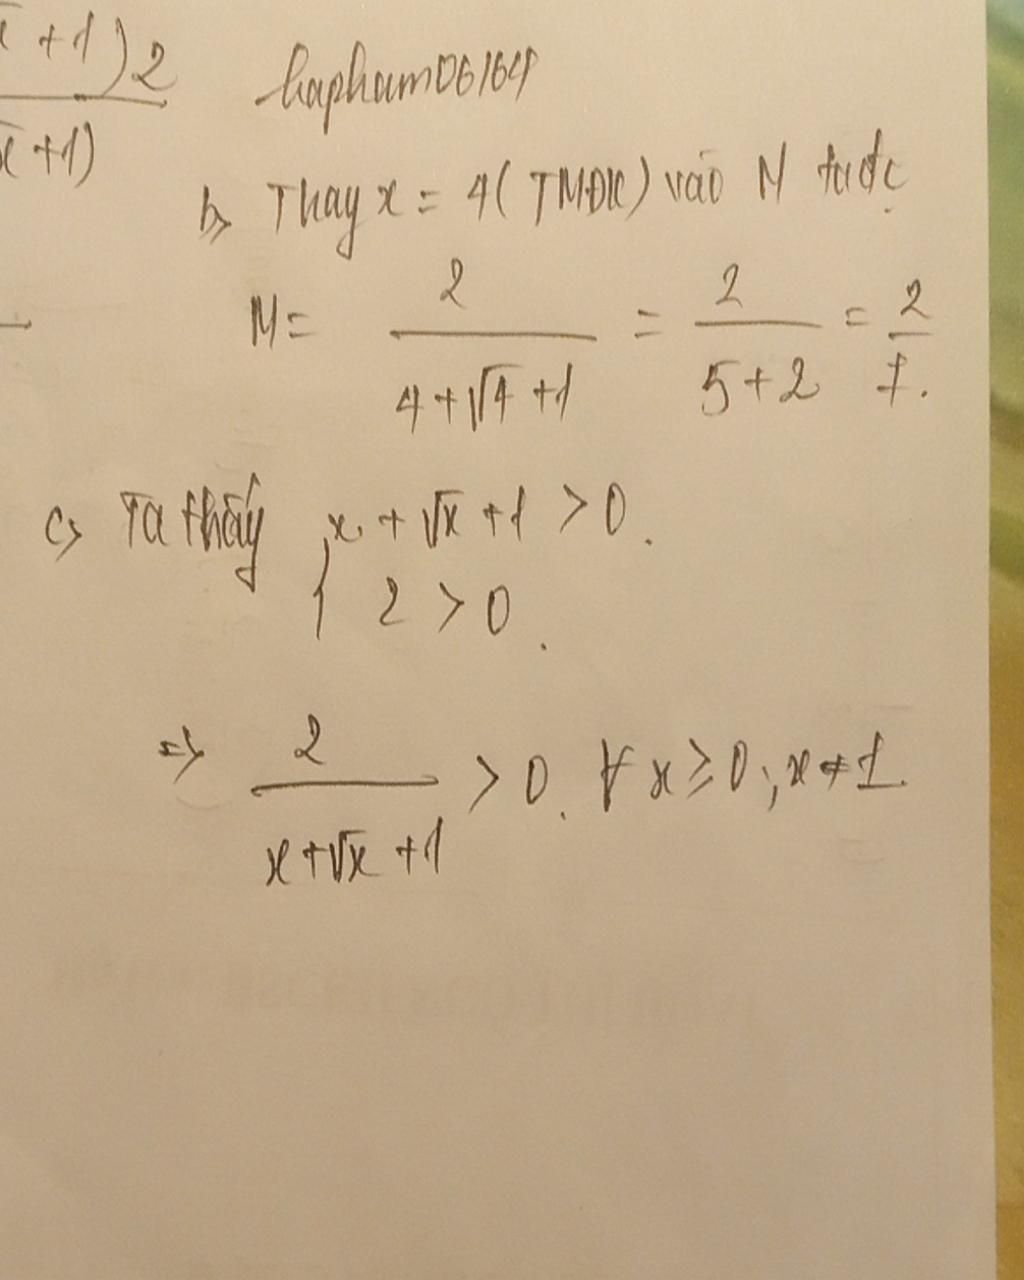 x + 1) 2
x + 1)
hapham06164
b, Thay x = 4 ( TMĐK) vào M ta đc
M = 2/(4 + √4 + 1) = 2/(5 + 2) = 2/7.
c, Ta thấy { x + √x + 1 > 0.
2 > 0.
=> 2/(x + √x + 1) > 0. ∀ x ≥ 0; x ≠ 1.